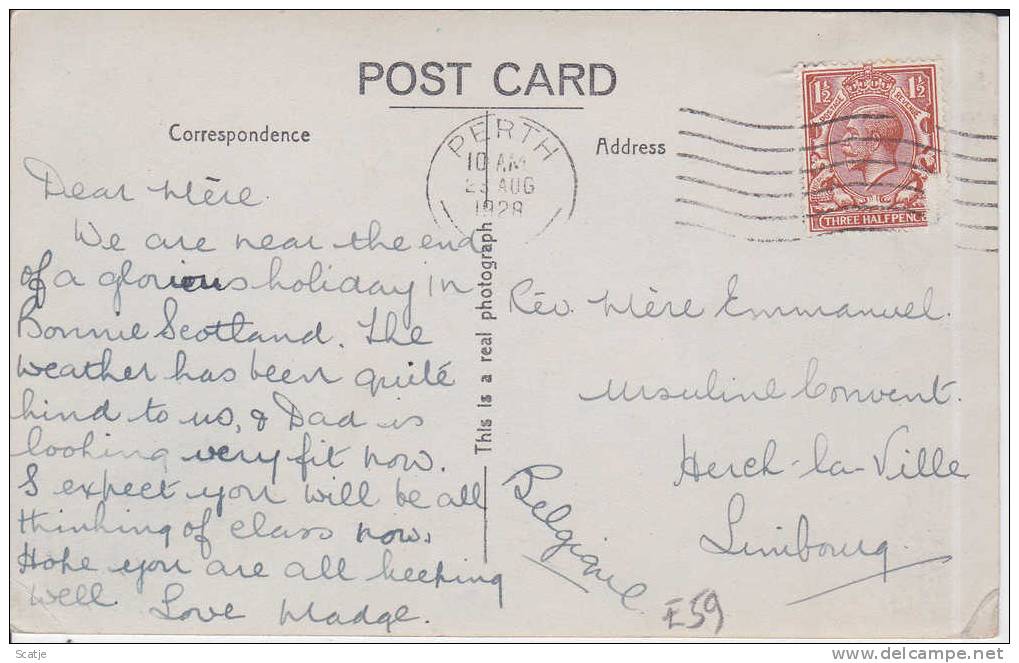 POST CARD
Correspondence
Address
PERTH
10 AM
23 AUG
1928
1½ 1½
POSTAGE REVENUE
THREE HALFPENCE
Dear Mère.
We are near the end
of a glorious holiday in
Bonnie Scotland. The
weather has been quite
kind to us, & Dad is
looking very fit now.
I expect you will be all
thinking of class now.
Hope you are all keeping
well. Love Madge.
This is a real photograph
Rév. Mère Emmanuel.
Ursuline Convent.
Herck-la-Ville
Limbourg
Belgique
£59
Scatje
delcampe.net